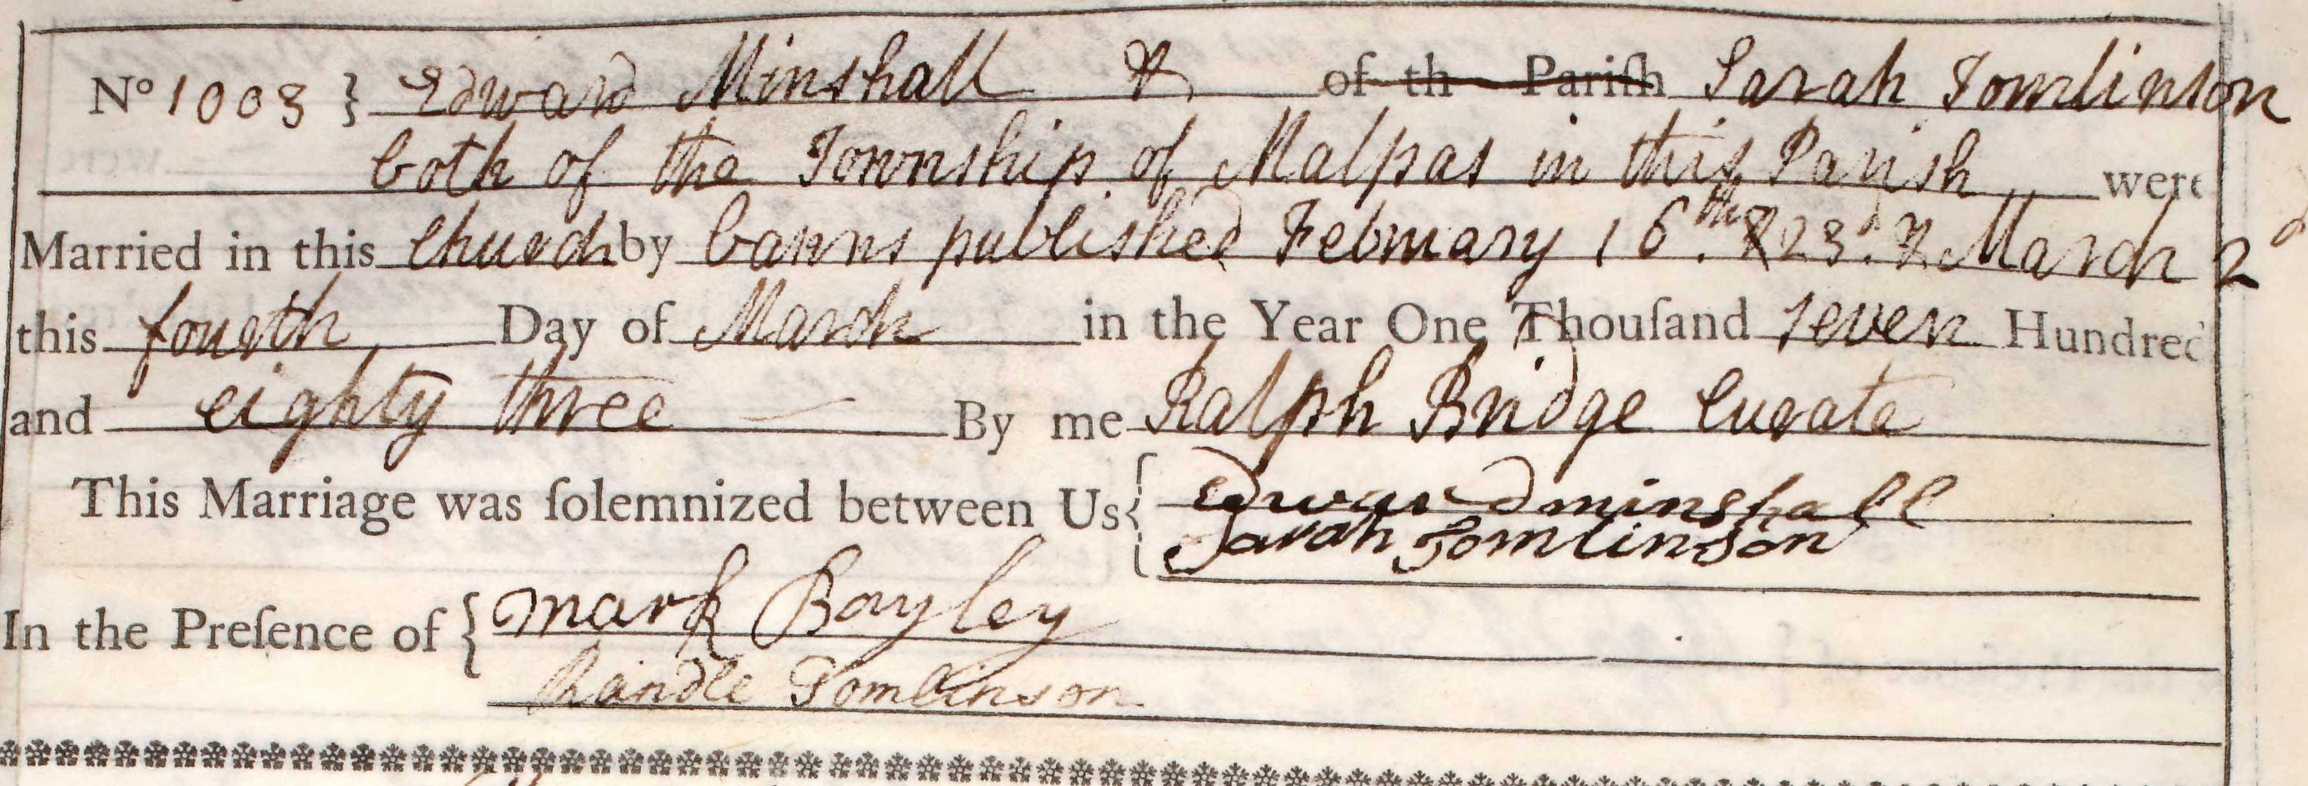 No 1003 } Edward Minshall & of th Pariſh Sarah Tomlinson
both of the Township of Malpas in this Parish were
Married in this Church by banns published February 16th. & 23d. & March 2d
this fourth Day of March in the Year One Thouſand seven Hundred
and eighty three By me Ralph Bridge Curate
This Marriage was ſolemnized between Us { Edward minshall
Sarah Tomlinson
In the Preſence of { Mark Bayley
Randle Tomlinson